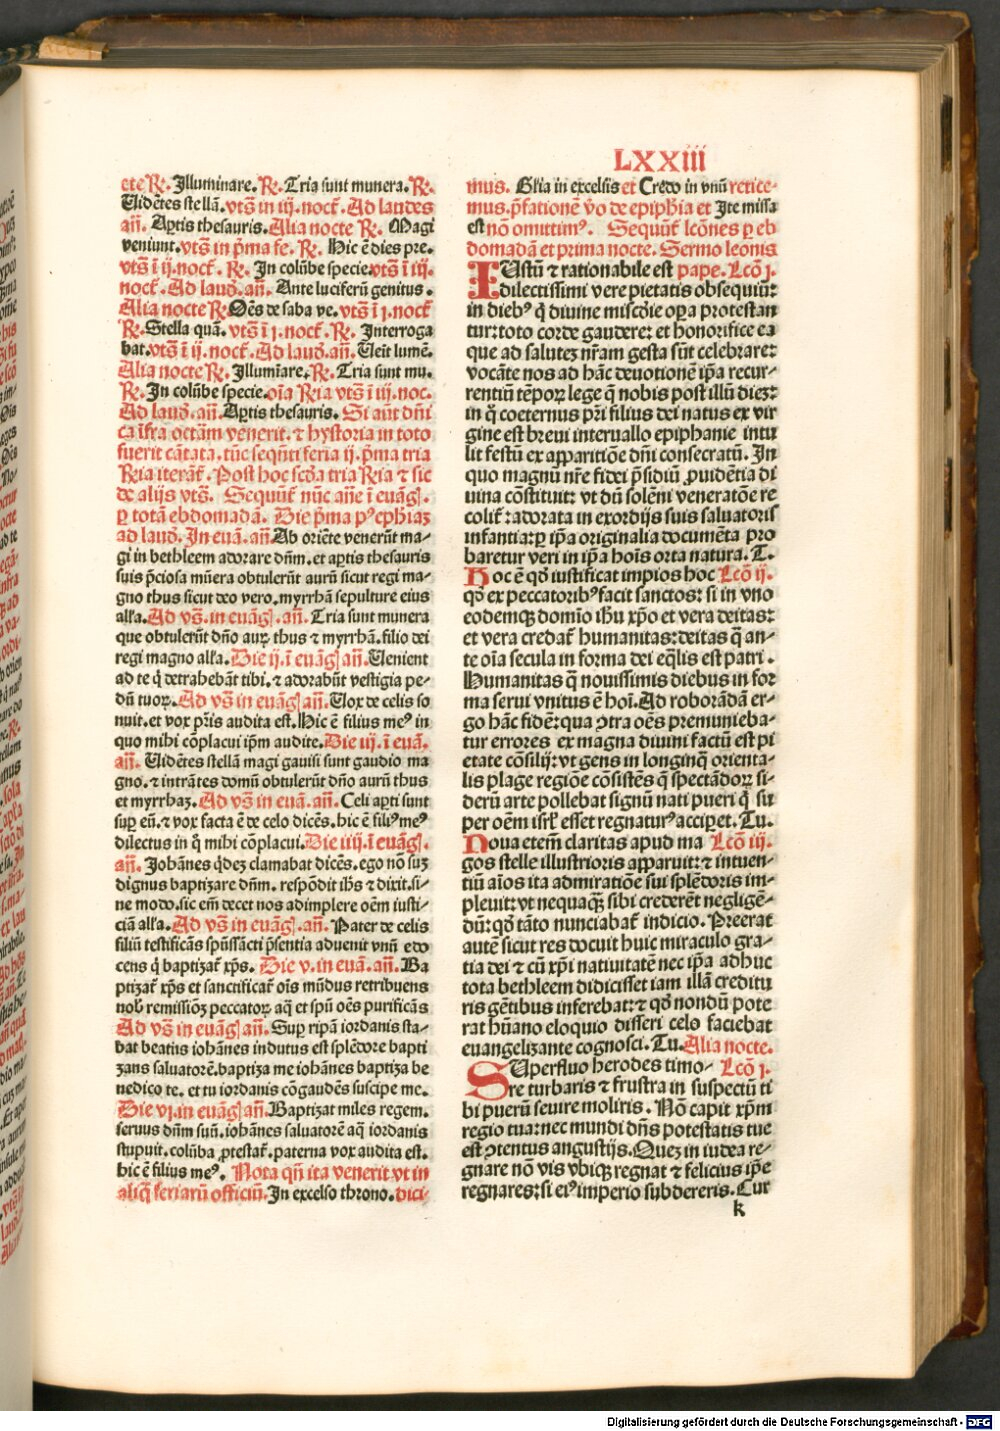 LXXIII
cte R. Illuminare. R. Tria sunt munera. R.
Uidētes stellā. vt̄s in iij. noct̄. Ad laudes
añ. Aptis thesauris. Alia nocte R. Magi
veniunt. vt̄s in p̄ma fe. R. Hic ē dies pre.
vt̄s ī ij. noct̄. R. In colūbe specie. vt̄s ī iij.
noct̄. Ad laud̄. añ. Ante luciferū genitus.
Alia nocte R. Oēs de saba ve. vt̄s ī j. noct̄
R. Stella quā. vt̄s ī j. noct̄. R. Interroga
bat. vt̄s ī ij. noct̄. Ad laud̄. añ. Ueīt lumē.
Alia nocte R. Illumīare. R. Tria sunt mu.
R. In colūbe specie. oīa Rīa vt̄s ī iij. noc.
Ad laud̄. añ. Aptis thesauris. Si aūt dñi
ca īfra octām venerit. ⁊ hystoria in toto
fuerit cātata. tūc seqn̄ti feria ij. p̄ma tria
Rīa iterāt. Post hoc scd̄a tria Rīa ⁊ sic
de alijs vt̄s. Sequūt̄ nūc añe ī euāg̃.
ꝑ totā ebdomadā. Die p̄ma pꝰ epħiaꝫ
ad laud̄. In euā. añ. Ab oriēte venerūt ma-
gi in bethleem adorare dñm. et aptis thesauris
suis p̄ciosa mūera obtulerūt aurū sicut regi ma-
gno thus sicut deo vero. myrrhā sepulture eius
alła. Ad vs̄. in euāg̃. añ. Tria sunt munera
que obtulerūt dño auꝝ thus ⁊ myrrhā. filio dei
regi magno alła. Die ij. ī euāg̃ añ. Uenient
ad te q̇ detrahebāt tibi. ⁊ adorabūt vestigia pe-
dū tuoꝝ. Ad vs̄ in euāg̃ añ. Uox de celis so
nuit. et vox pr̄is audita est. Hic ē filius meꝰ in
quo mihi cōplacui ip̄m audite. Die iij. ī euā.
añ. Uidētes stellā magi gauisi sunt gaudio ma
gno. ⁊ intrātes domū obtulerūt dño aurū thus
et myrrhaꝫ. Ad vs̄ in euā. añ. Celi apti sunt
suꝑ eū. ⁊ vox facta ē de celo dicēs. hic ē filiꝰ meꝰ
dilectus in q̇ mihi cōplacui. Die iiij. ī euāg̃.
añ. Johānes q̇deꝫ clamabat dicēs. ego nō suꝫ
dignus baptizare dñm. respōdit iħs ⁊ dixit. si-
ne modo. sic em̄ decet nos adimplere oēm iusti-
ciā alła. Ad vs̄ in euāg̃. añ. Pater de celis
filiū testificās spūssācti p̄sentia aduenit vnū edo
cens q̇ baptizat̄ xp̄s. Die v. in euā. añ. Ba
ptizat̄ xp̄s et sanctificat̄ oīs mūdus retribuens
nob̄ remissiōꝫ peccatoꝝ aq̄ et spū oēs purificās
Ad vs̄ in euāg̃ añ. Suꝑ ripā iordanis sta-
bat beatus iohānes indutus est splēdore bapti
zans saluatorē. baptiza me iohānes baptiza be
nedico te. et tu iordanis cōgaudēs suscipe me.
Die vj. in euāg̃ añ. Baptizat miles regem.
seruus dñm suū. iohānes saluatorē aq̄ iordanis
stupuit. colūba ꝓtestat̄. paterna vox audita est.
hic ē filius meꝰ. Nota qñ ita venerit vt in
aliq̇ feriarū officiū. In excelso throno. dici-
mus. Gl̄ia in excelsis et Credo in vnū retice-
mus. p̄fatione v̄o de epiph̄ia et Ite missa
est nō omittimꝰ. Sequūt̄ lcōnes ꝑ eb
domadā et prima nocte. Sermo leonis
IUstū ⁊ rationabile est pape. Lcō j.
dilectissimi vere pietatis obsequiū:
in diebꝰ q̄ diuine mīscōie oꝑa protestan
tur: toto corde gaudere: et honorifice ea
que ad salutez nr̄am gesta sūt celebrare:
vocāte nos ad hāc deuotionē ip̄a recur-
rentiū tēpoꝝ lege q̄ nobis post illū diez:
in q̇ coeternus pr̄i filius dei natus ex vir
gine est breui interuallo epiphanie intu
lit festū ex apparitiōe dñi consecratū. In
quo magnū nr̄e fidei p̄sidiū ꝓuidētia di
uina cōstituit: vt dū solēni veneratōe re
colit̄: adorata in exordijs suis saluatoris
infantia: ꝑ ip̄a originalia documēta pro
baretur veri in ip̄a hoīs orta natura. T.
Hoc ē qd̄ iustificat impios hoc Lcō ij.
qd̄ ex peccatoribꝰ facit sanctos: si in vno
eodemqꝫ domīo iħu xp̄o et vera deitas:
et vera credat̄ humanitas: deitas q̄ an-
te oīa secula in forma dei eq̄lis est patri.
Humanitas q̄ nouissimis diebus in for
ma serui vnitus ē hoī. Ad roborādā er-
go hāc fidē: qua ꝯtra oēs premunieba-
tur errores ex magna diuini factū est pi
etate cōsilij: vt gens in longinq̄ orienta-
lis plage regiōe cōsistēs q̄ spectādoꝝ si-
derū arte pollebat signū nati pueri q̇ su
per oēm isrl̄ esset regnaturꝰ acciꝑet. Tu.
Noua etem̄ claritas apud ma Lcō iij.
gos stelle illustrioris apparuit: ⁊ intuen-
tiū aīos ita admiratiōe sui splēdoris im-
pleuit: vt nequaq̄ꝫ sibi crederēt negligē-
dū: qd̄ tāto nunciabat̄ indicio. Preerat
autē sicut res docuit huic miraculo gra-
tia dei ⁊ cū xp̄i natiuitatē nec ip̄a adhuc
tota bethleem didicisset iam illā creditu
ris gētibus inferebat: ⁊ qd̄ nondū pote
rat hūano eloquio disseri celo faciebat
euangelizante cognosci. Tu. Alia nocte.
SUperfluo herodes timo- Lcō j.
re turbaris ⁊ frustra in suspectū ti
bi puerū seuire moliris. Nō capit xp̄m
regio tua: nec mundi dñs potestatis tue
est ꝯtentus angustijs. Quez in iudea re-
gnare nō vis vbiqꝫ regnat ⁊ felicius ip̄e
regnares: si eiꝰ imperio subdereris. Cur
k
Digitalisierung gefördert durch die Deutsche Forschungsgemeinschaft - DFG